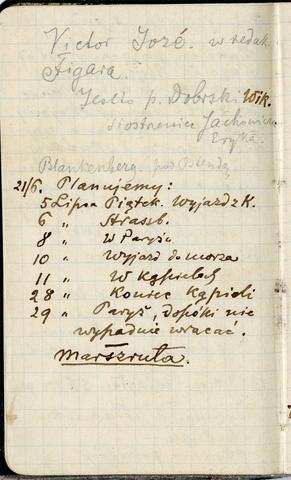 Victor Jozé. w redak.
Figara.
Jeśli p. Dobrski Wik.
siostrzeniec Jachowicza
Eryka.
Blankenberg. pod Ostendą
21/6. Planujemy:
5 Lipca Piątek. Wyjazd z K.
6 „ Strassb.
8 „ W Paryżu
10 „ Wyjazd do morza
11 „ W kąpielach
28 „ Koniec kąpieli
29 „ Paryż, dopóki nie
wypadnie wracać.
Marszruta.